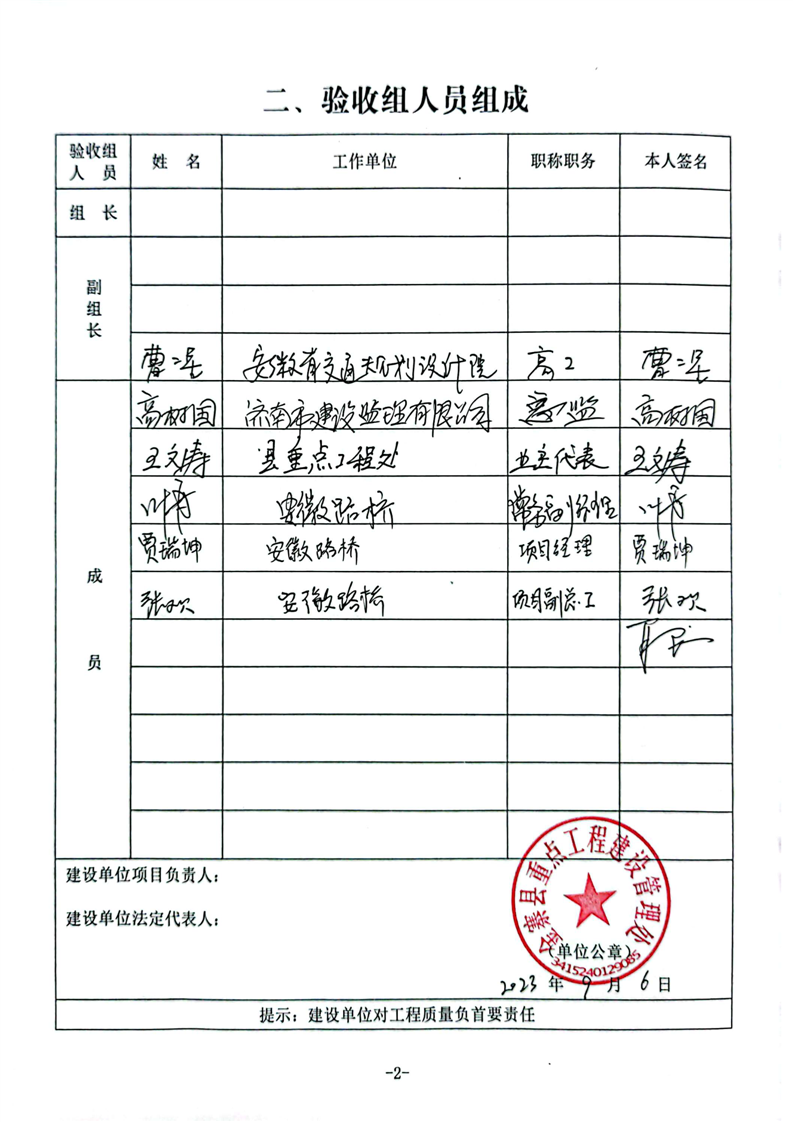 二、验收组人员组成
验收组人员 姓 名 工作单位 职称职务 本人签名
组 长
副组长
安徽省交通规划设计院 高工
成员
高树国 济南市建设监理有限公司 高树国
王文涛 县重点工程处 业主代表 王文涛
安徽路桥
贾瑞坤 安徽路桥 项目经理 贾瑞坤
张欢 安徽路桥 项目副总工 张欢
建设单位项目负责人:
建设单位法定代表人:
金寨县重点工程建设管理处
(单位公章)
3415240129085
2023 年 9 月 6 日
提示: 建设单位对工程质量负首要责任
-2-